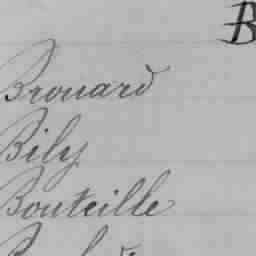 B
Brouard
Bily
Bouteille